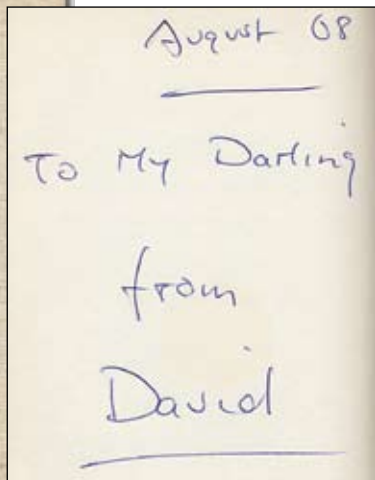 August 08
To My Darling
from
David